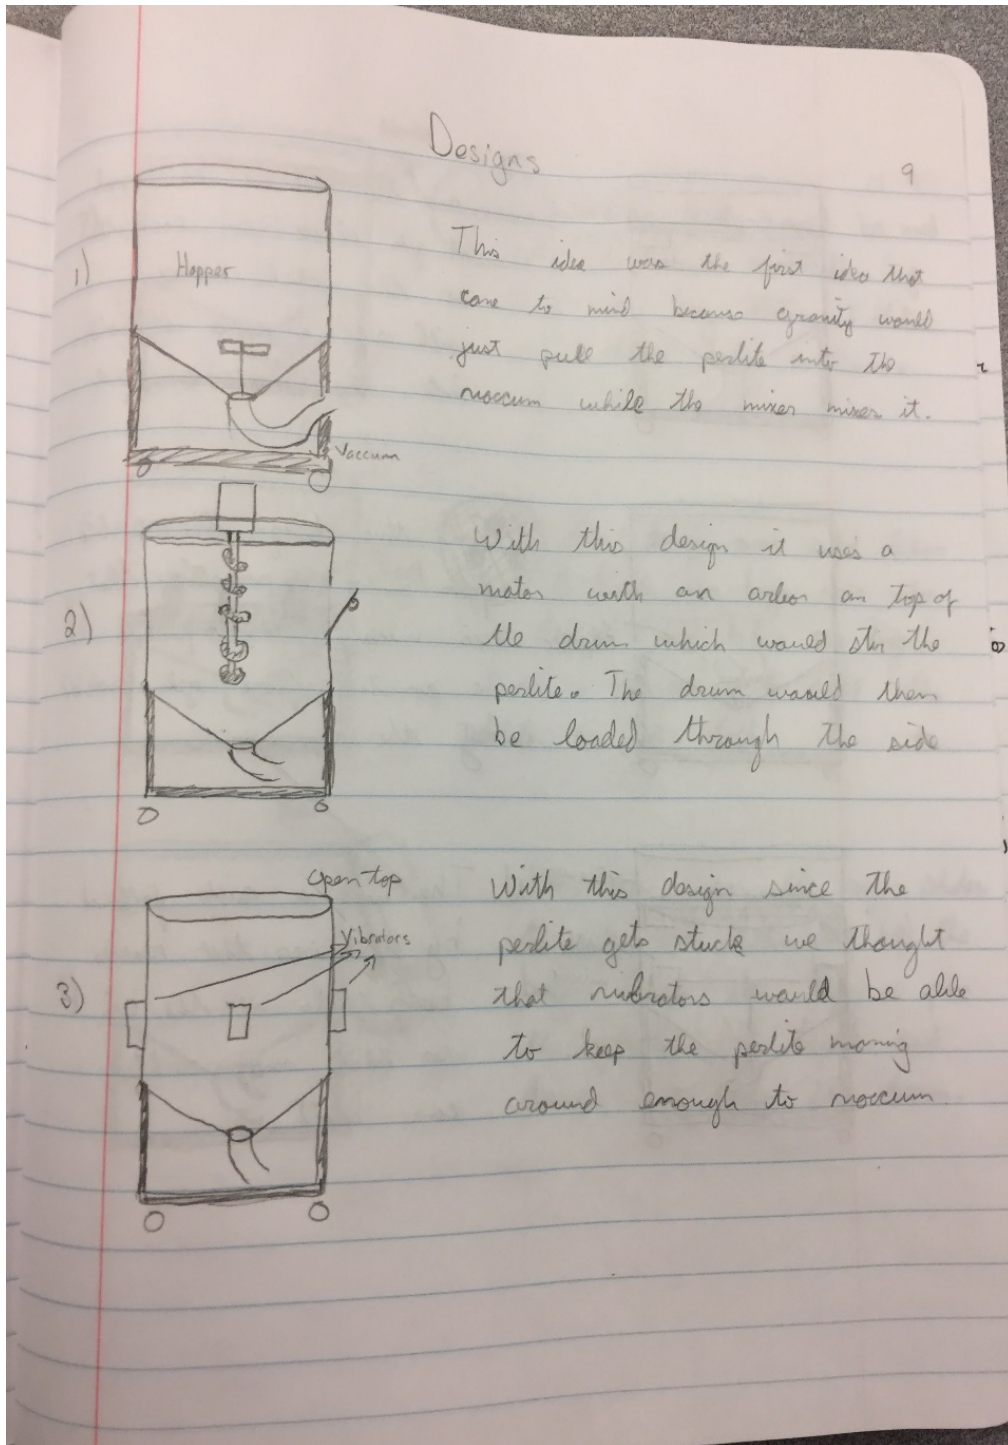 Designs
9
1)
Hopper
Vaccum
This idea was the first idea that
came to mind because gravity would
just pull the perlite into the
vaccum while the mixer mixes it.
2)
With this design it uses a
motor with an arbor on top of
the drum which would stir the
perlite. The drum would then
be loaded through the side
3)
Open top
Vibrators
With this design since the
perlite gets stuck we thought
that vibrators would be able
to keep the perlite moving
around enough to vaccum